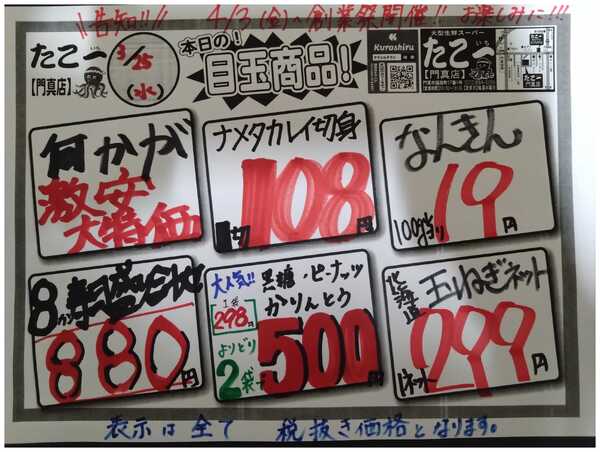 告知!! 4/3(金)~創業祭開催!! お楽しみに!!!
たこ一
いち
【門真店】
3/25
(水)
本日の!
目玉商品!
Kuroshiru
大型生鮮スーパー
たこ一
【門真店】
何かが
激安
大特価
ナメタカレイ切身
108円
なんきん
100g当り
19円
8カン寿司盛り合せ
880円
大人気!!
1袋
298円
よりどり
2袋
黒糖・ピーナッツ
かりんとう
500円
北海道
玉ねぎネット
1ネット
299円
表示は全て 税抜き価格となります。